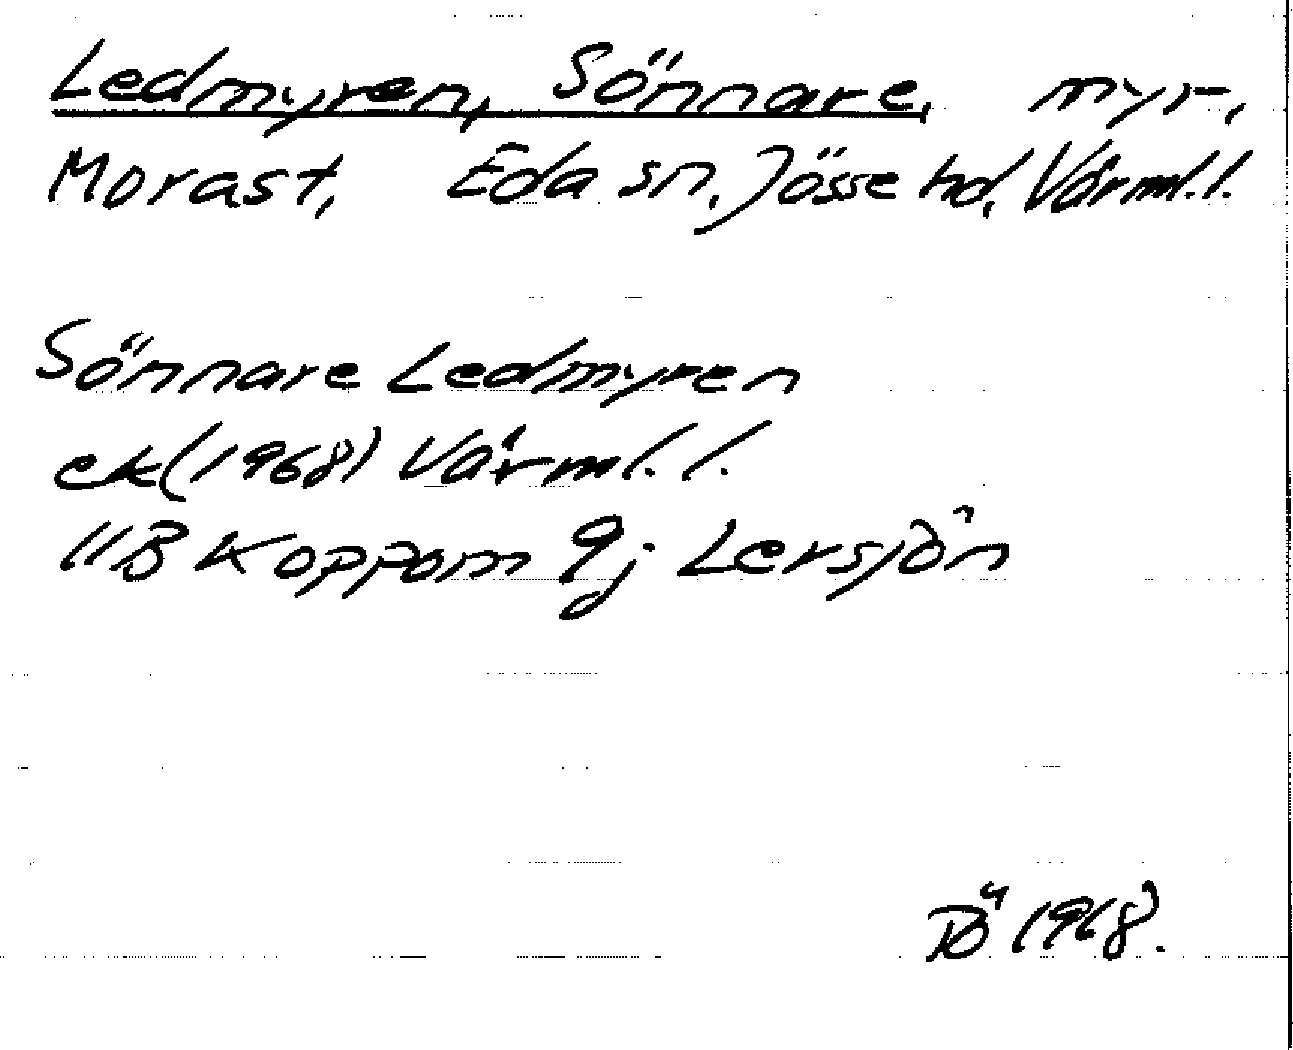 Ledmyren, Sönnare, myr,
Morast, Eda sn, Jösse hd, Värml. l.
Sönnare Ledmyren
ek (1968) Värml. l.
11B Koppom 9j Lersjön
1968.